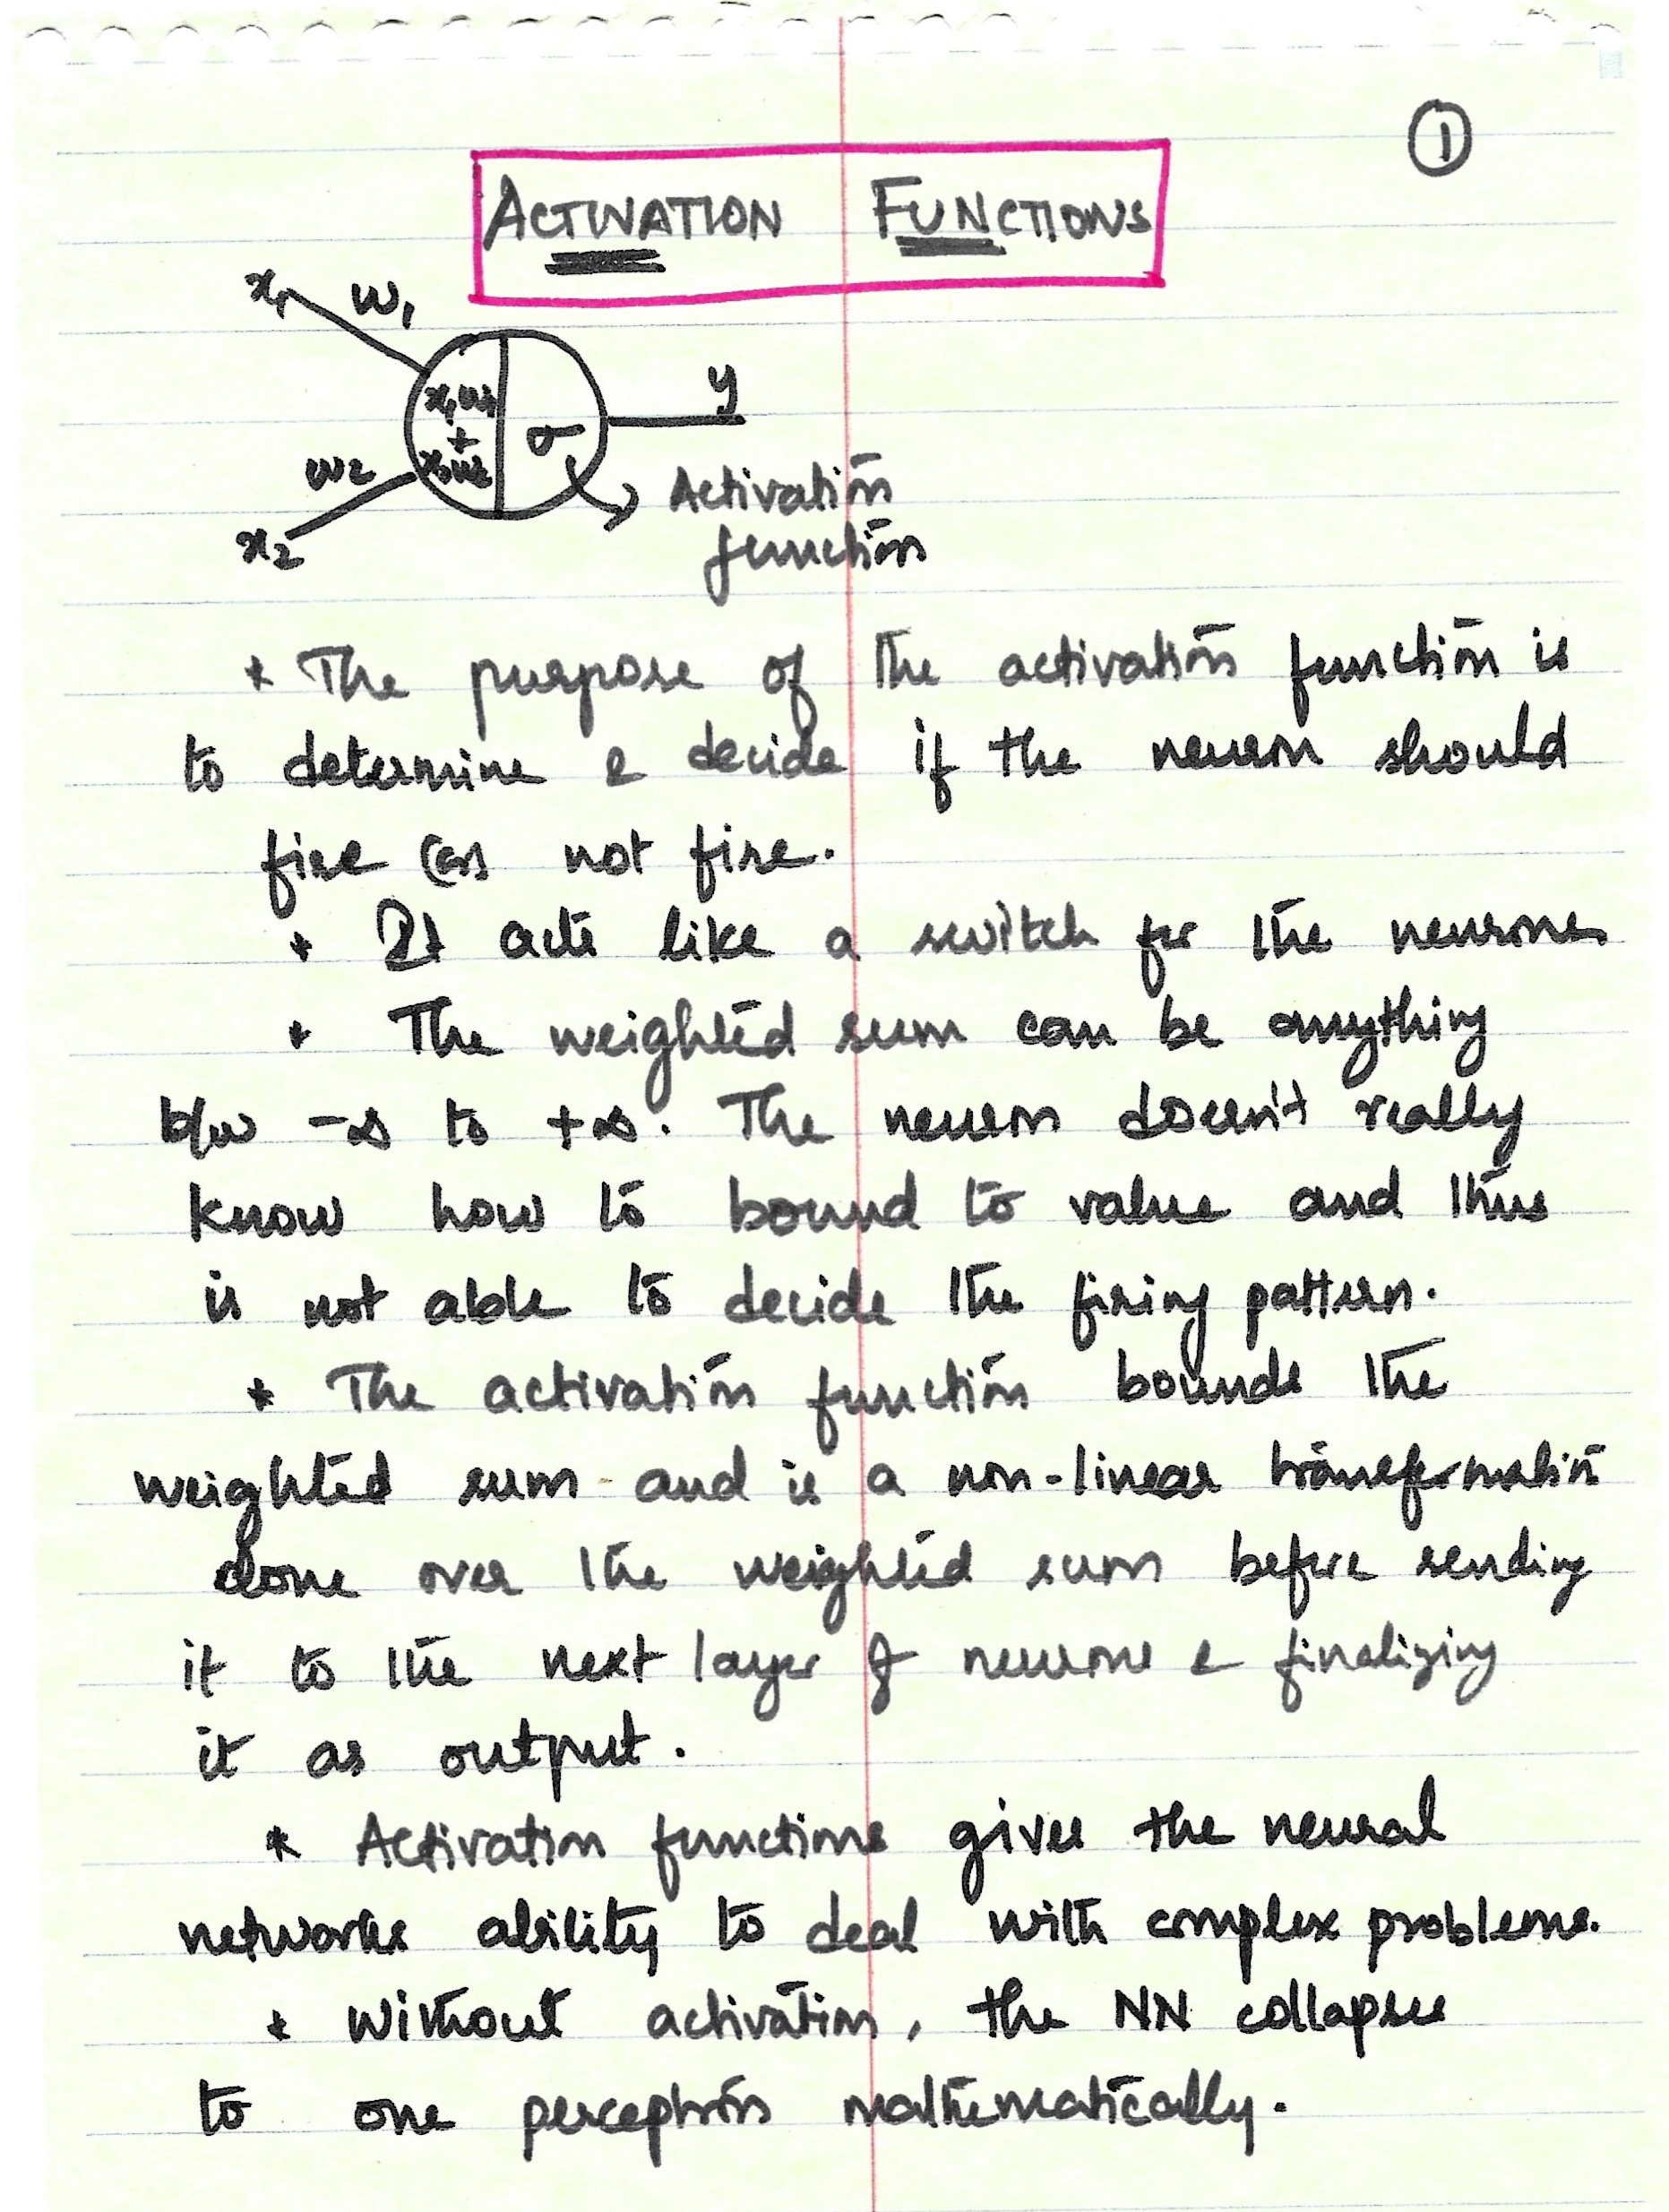 ①
ACTIVATION FUNCTIONS
x₁ w₁
x₁w₁
+
x₂w₂
σ
y
w₂
x₂
Activation
function
* The purpose of the activation function is
to determine & decide if the neuron should
fire (or) not fire.
* It acts like a switch for the neurones
* The weighted sum can be anything
b/w -∞ to +∞. The neuron doesn't really
know how to bound to value and thus
is not able to decide the firing pattern.
* The activation function bounds the
weighted sum and is a non-linear transformation
done over the weighted sum before sending
it to the next layer of neurons & finalizing
it as output.
* Activation functions gives the neural
networks ability to deal with complex problems.
* Without activation, the NN collapses
to one perceptron mathematically.